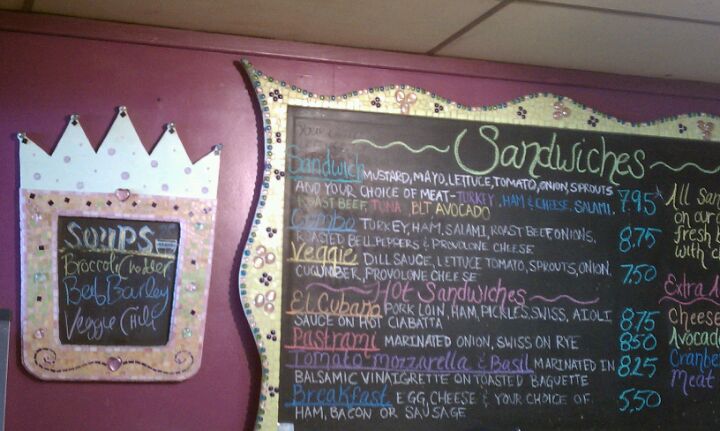 SOUPS
Broccoli Chedder
Beef Barley
Veggie Chili
Sandwiches
Sandwich MUSTARD, MAYO, LETTUCE, TOMATO, ONION, SPROUTS
AND YOUR CHOICE OF MEAT-TURKEY, HAM & CHEESE, SALAMI, 7.95
ROAST BEEF, TUNA, BLT AVOCADO
Combo TURKEY, HAM, SALAMI, ROAST BEEF ONIONS, 8.75
ROASTED BELL PEPPERS & PROVOLONE CHEESE
Veggie DILL SAUCE, LETTUCE TOMATO, SPROUTS, ONION, 7.50
CUCUMBER, PROVOLONE CHEESE
Hot Sandwiches
El Cubano PORK LOIN, HAM, PICKLES, SWISS, AIOLI 8.75
SAUCE ON HOT CIABATTA
Pastrami MARINATED ONION, SWISS ON RYE 8.50
Tomato mozzarella & Basil MARINATED IN 8.25
BALSAMIC VINAIGRETTE ON TOASTED BAGUETTE
Breakfast EGG, CHEESE & YOUR CHOICE OF 5.50
HAM, BACON OR SAUSAGE
All San
on our
fresh b
with c
Extra
Cheese
Avocad
Cranbe
Meat